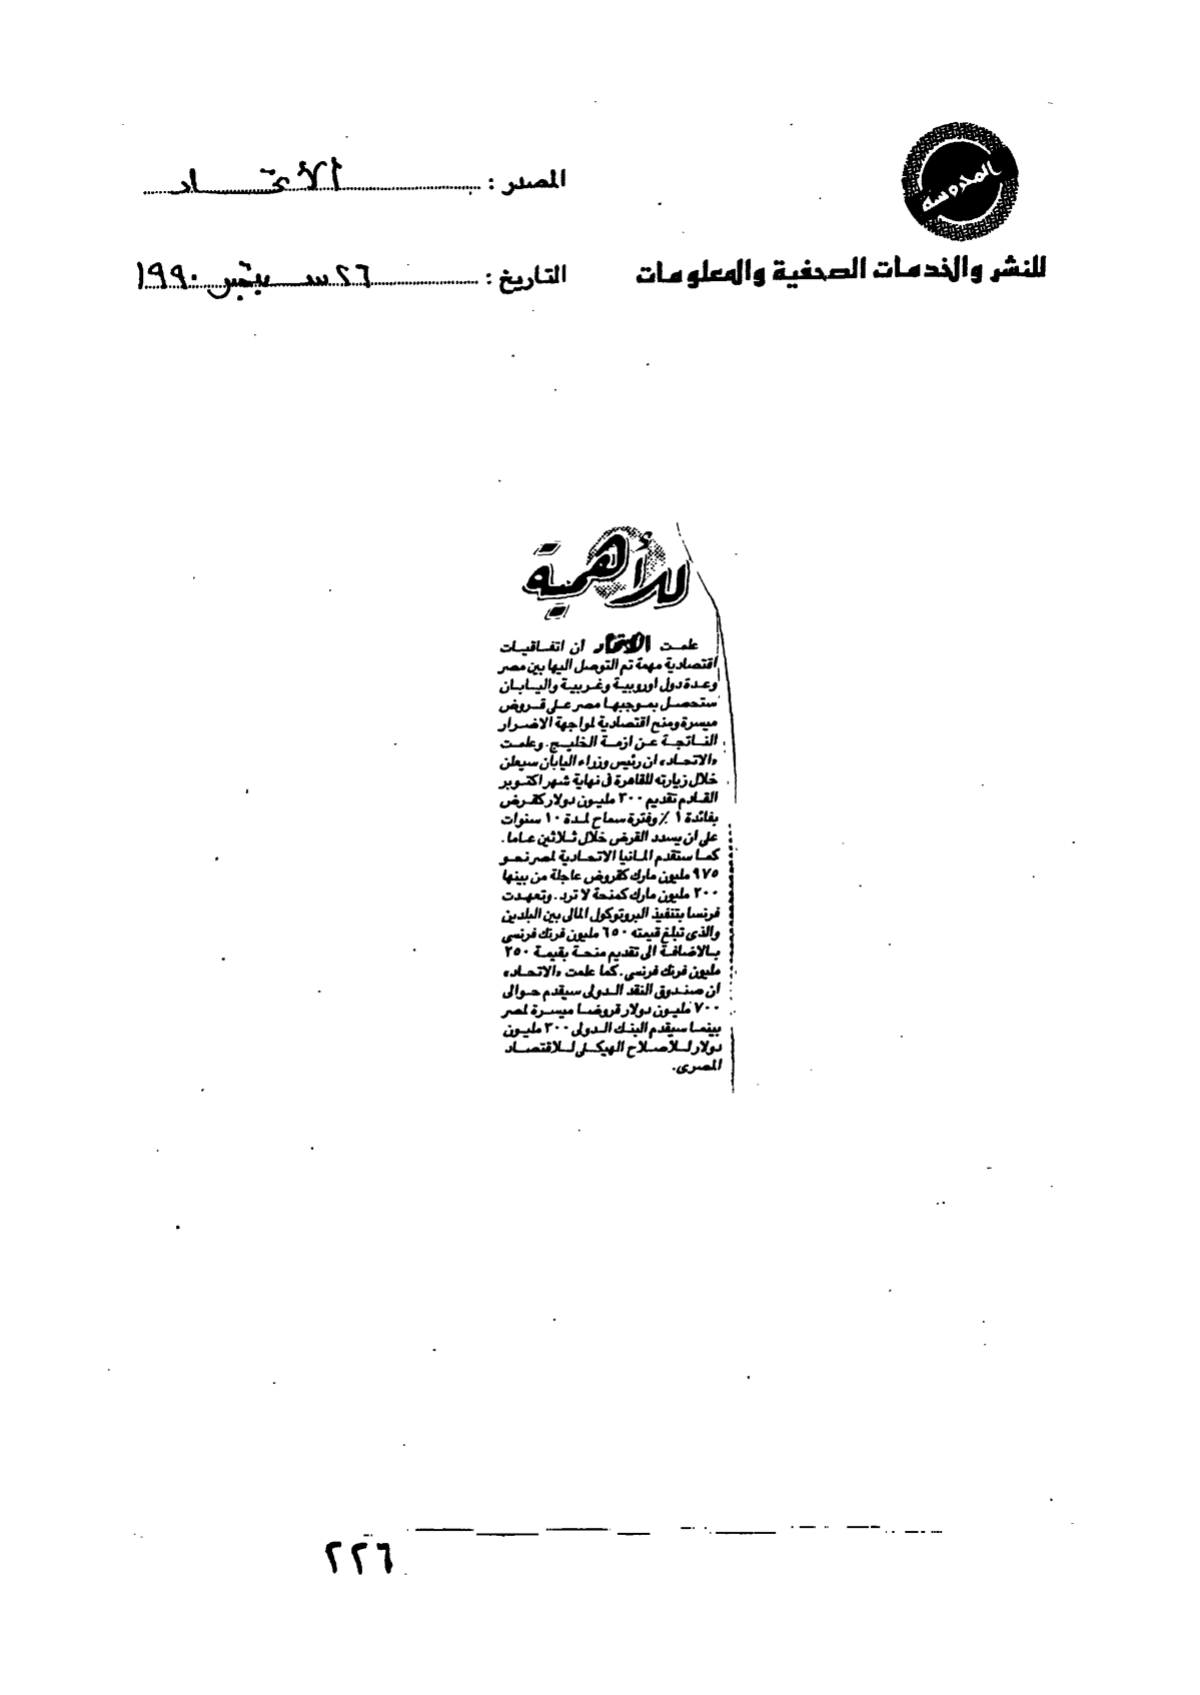 المحروسة
للنشر والخدمات الصحفية والمعلومات
المصدر : الاتحاد
التاريخ : ٢٦ سبتمبر ١٩٩٠
للأهمية
علمت الاتحاد ان اتفاقيات
اقتصادية مهمة تم التوصل اليها بين مصر
وعدة دول اوروبية وغربية واليابان
ستحصل بموجبها مصر على قروض
ميسرة ومنح اقتصادية لمواجهة الاضرار
الناتجة عن ازمة الخليج. وعلمت
«الاتحاد» ان رئيس وزراء اليابان سيعلن
خلال زيارته للقاهرة فى نهاية شهر اكتوبر
القادم تقديم ٣٠٠ مليون دولار كقرض
بفائدة ١٪ وفترة سماح لمدة ١٠ سنوات
على ان يسدد القرض خلال ثلاثين عاما.
كما ستقدم المانيا الاتحادية لمصر نحو
٩٧٥ مليون مارك كقروض عاجلة من بينها
٢٠٠ مليون مارك كمنحة لا ترد. وتعهدت
فرنسا بتنفيذ البروتوكول المالى بين البلدين
والذى تبلغ قيمته ٦٥٠ مليون فرنك فرنسى
بالاضافة الى تقديم منحة بقيمة ٢٥٠
مليون فرنك فرنسى. كما علمت «الاتحاد»
ان صندوق النقد الدولى سيقدم حوالى
٧٠٠ مليون دولار قروضا ميسرة لمصر
بينما سيقدم البنك الدولى ٣٠٠ مليون
دولار للاصلاح الهيكلى للاقتصاد
المصرى.
٢٢٦